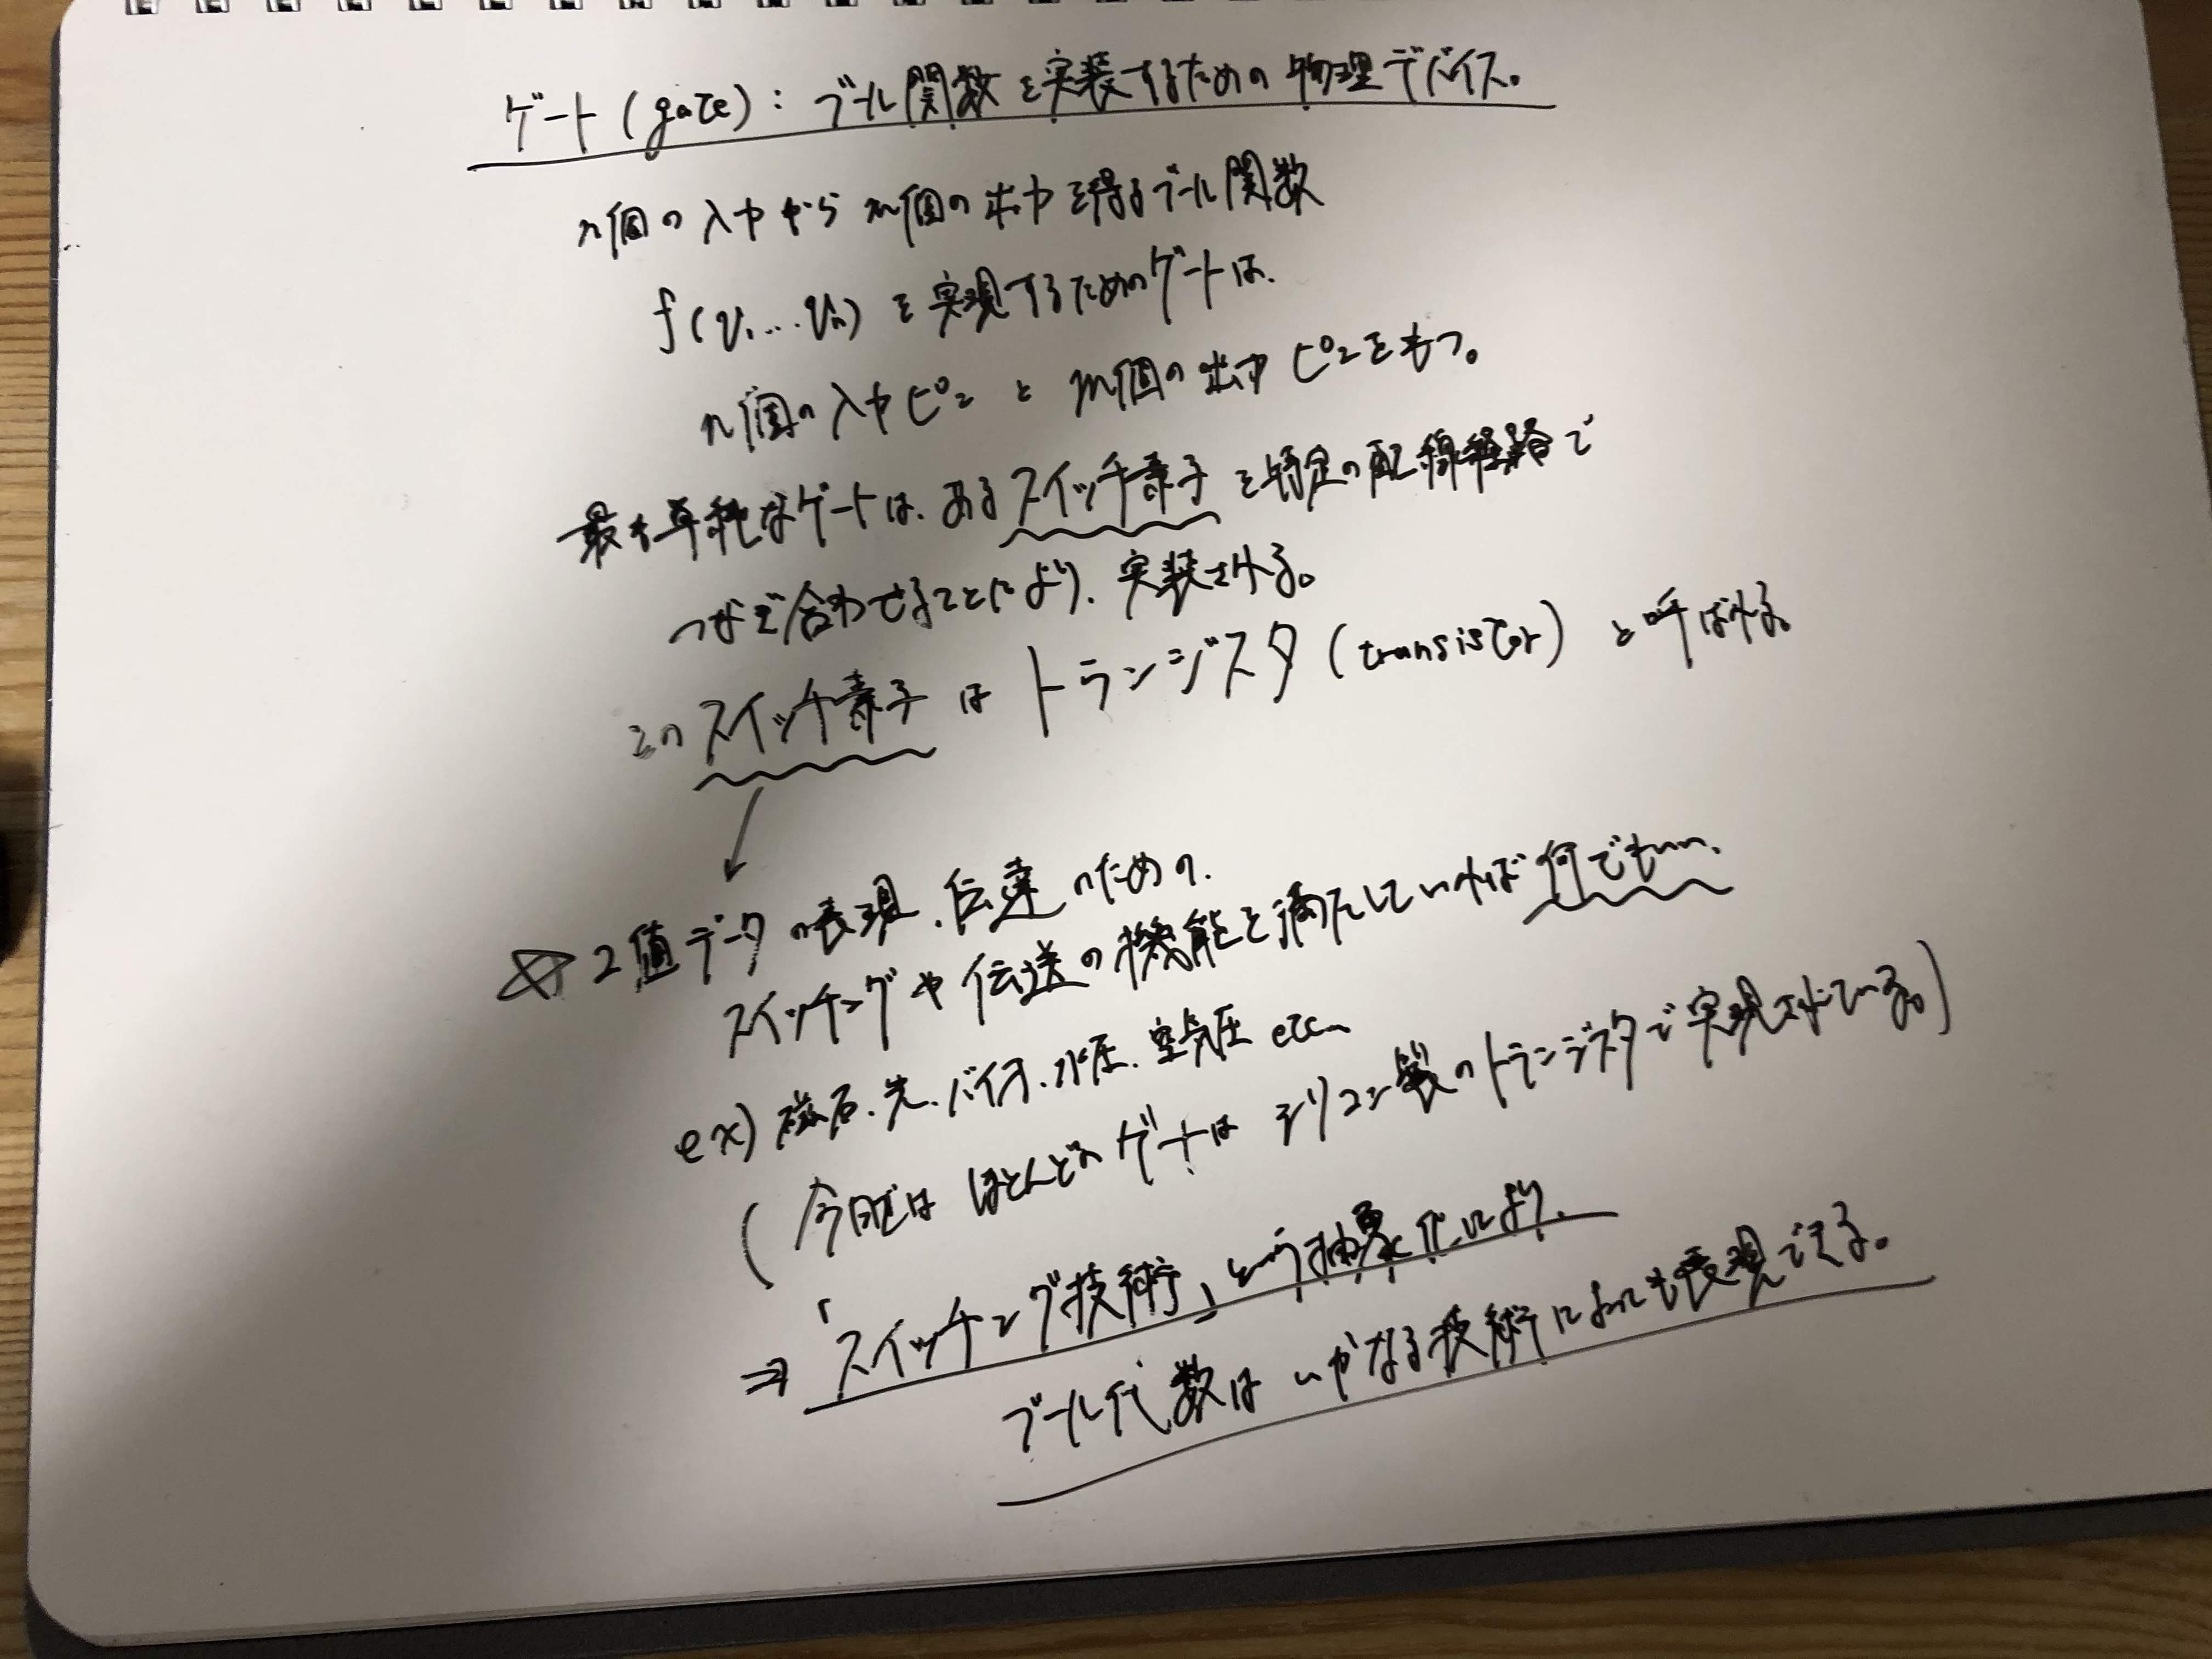 ゲート(gate): ブール関数を実装するための物理デバイス。
n個の入力からm個の出力を得るブール関数
f(v1...vn)を実現するためのゲートは、
n個の入力ピンとm個の出力ピンをもつ。
最も単純なゲートは、あるスイッチ素子を特定の配線経路で
つなぎ合わせることにより、実装される。
このスイッチ素子はトランジスタ(transistor)と呼ばれる。
☆2値データの表現、伝達のための、
スイッチングや伝送の機能を満たしていれば何でもいい、
ex) 磁石、光、バイオ、水圧、空気圧 etc..
(今日ではほとんどのゲートはシリコン製のトランジスタで実現されている。)
⇒「スイッチング技術」という抽象化により、
ブール代数はいかなる技術によっても表現できる。